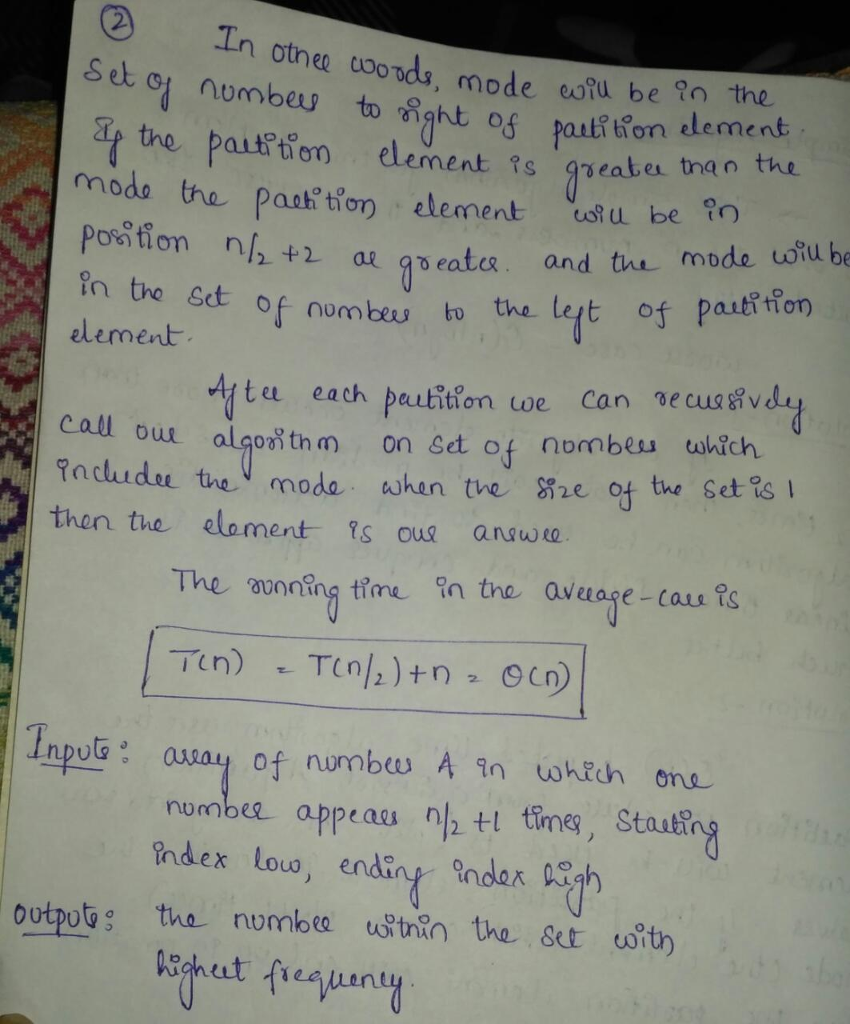 ②
In other words, mode will be in the
set of numbers to right of partition element.
If the partition element is greater than the
mode the partition element will be in
position n/2 +2 or greater. and the mode will be
in the set of numbers to the left of partition
element.
After each partition we can recursively
call our algorithm on set of numbers which
includes the mode. when the size of the set is 1
then the element is our answer.
The running time in the average-case is
T(n) = T(n/2) + n = Θ(n)
Inputs: array of numbers A in which one
number appears n/2 +1 times, Starting
index low, ending index high
outputs: the number within the set with
highest frequency.